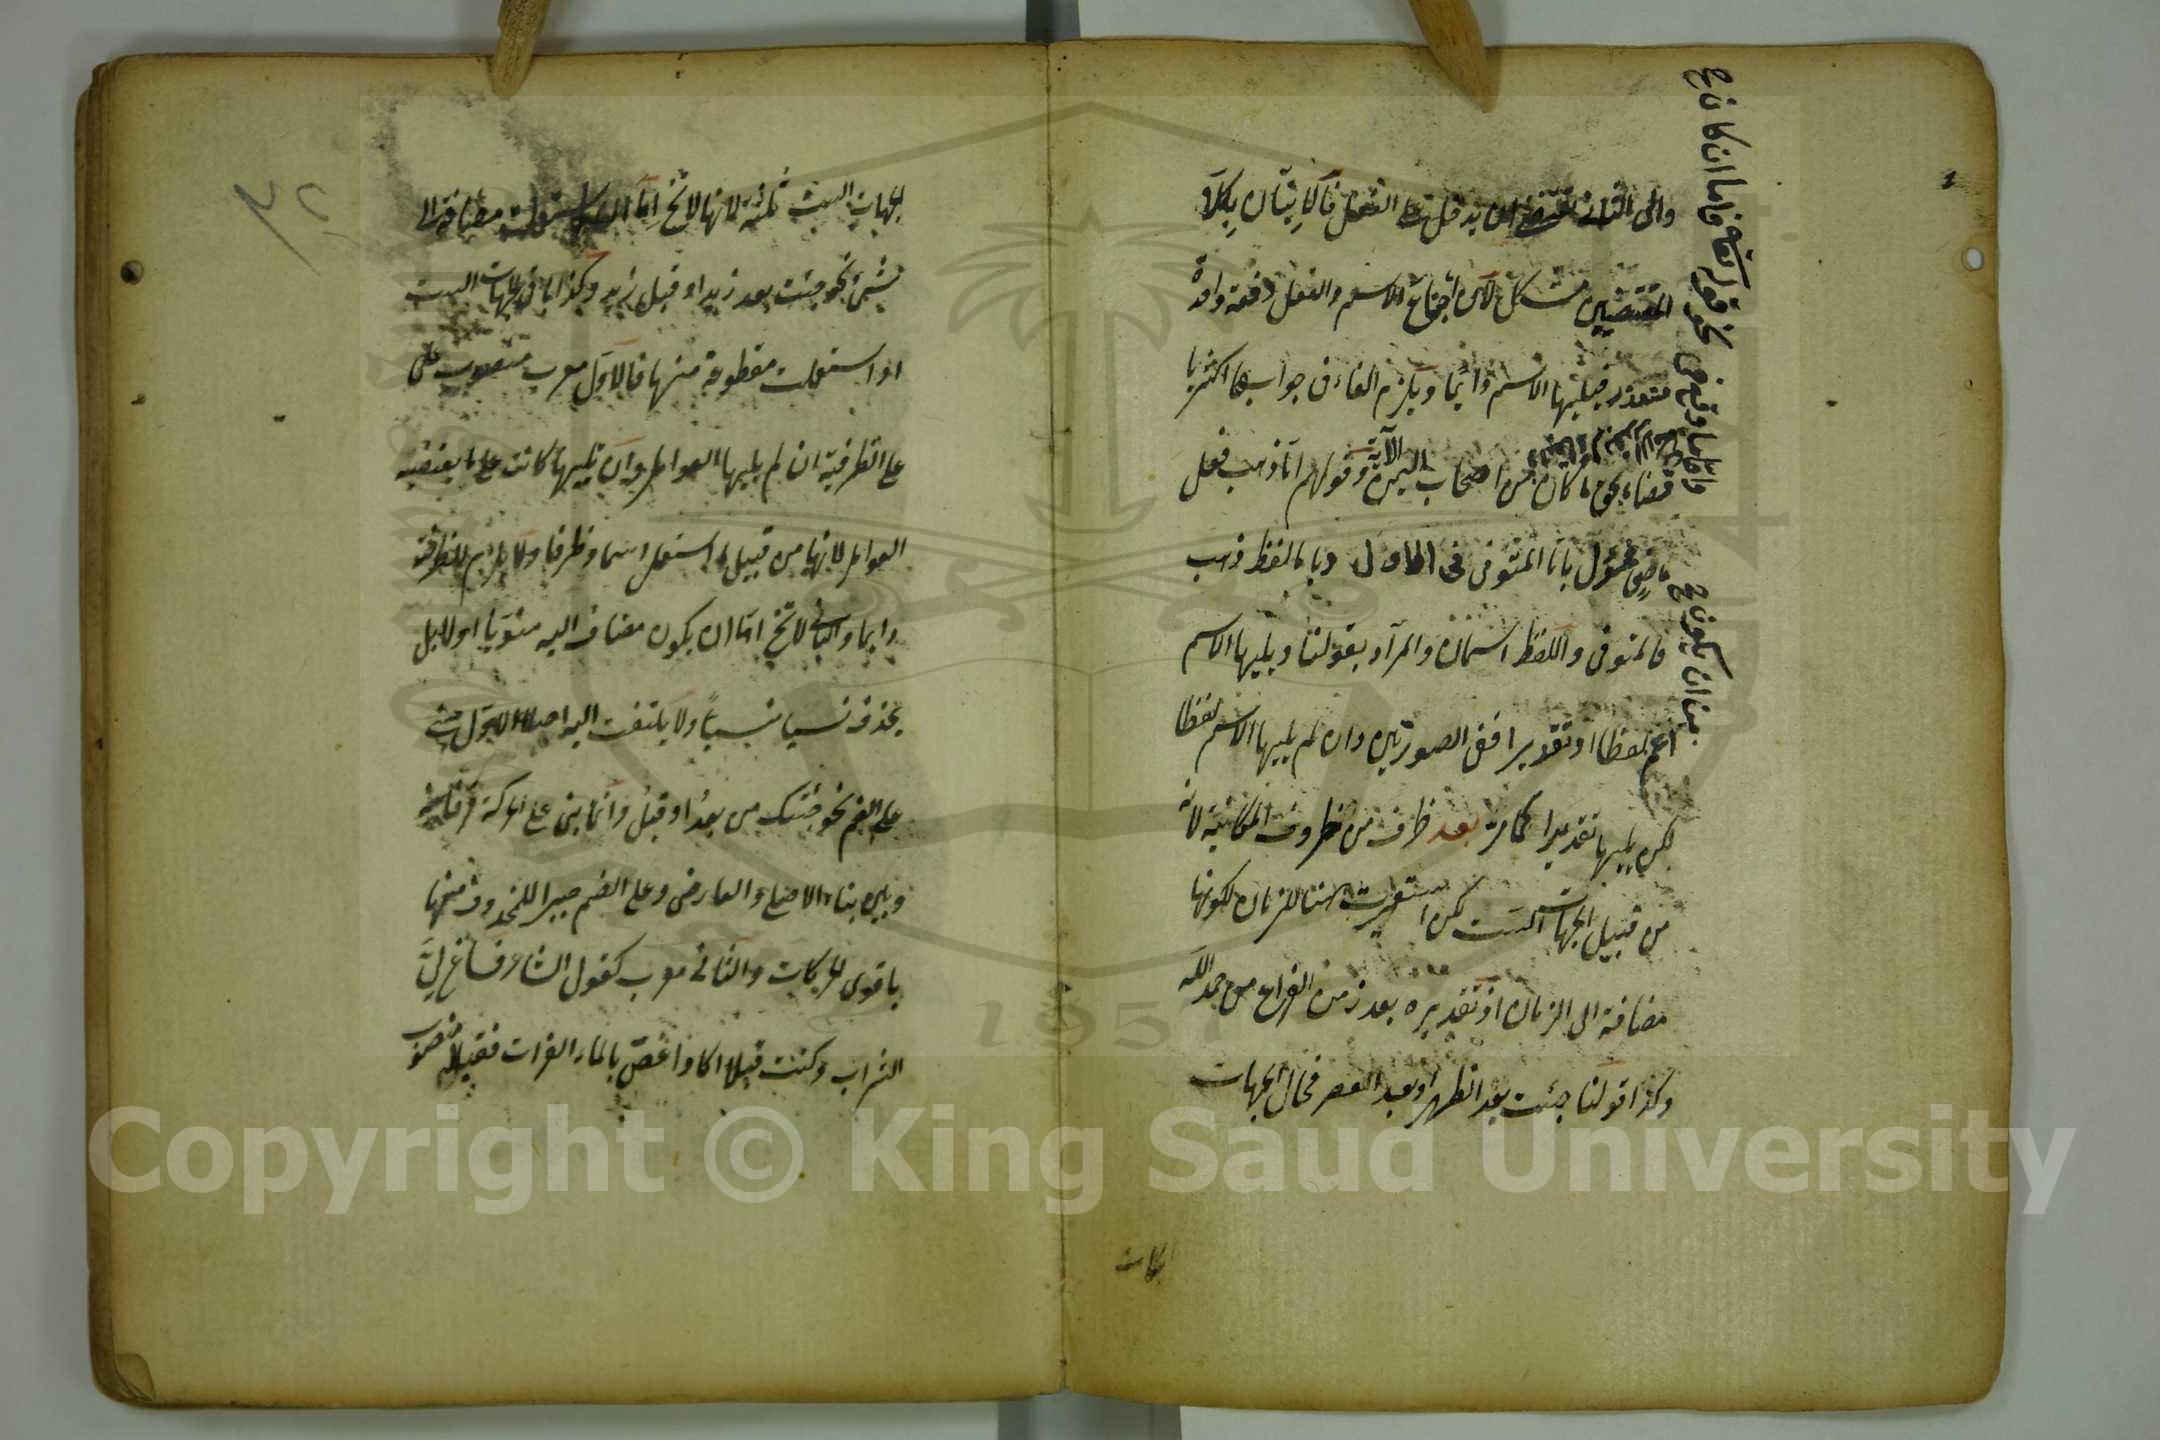 والى الثانى تقتضى ان يدخل على الفعل فالاتيان بكلا
المقتضيين مشكل لان اجتماع الاسم والفعل دفعة واحدة
متعذر فيليها الاسم دائما ويلزم الفاء فى جوابها اكثريا
قضاء بحق ما كان من اصحاب اليمين الآية وقولهم اما ذهب فعل
ماض مؤول بانا المتوفى فى الاول وبا لفظ ذهب
فالمتوفى واللفظ اسمان والمراد بقولنا ويليها الاسم
اعم لفظا او تقديرا ففى الصورتين وان لم يليها الاسم لفظا
لكن يليها تقديرا كما مر بعد ظرف من ظروف المكانية لانه
من قبيل الجهات الست لكن استعيرت هنا للزمان لكونها
مضافة الى الزمان اذ تقديره بعد زمن الفراغ من حمد الله
وكذا قولنا جئت بعد الظهر او بعد العصر فحال الجهات
نحو قوله تعالى فاما ان كان
واما وقع فى
بمن ان يكون
لجهات الست ثلثة لانها لا تخ اما ان استعملت مضافة الى
شئ نحو جئت بعد زيد او قبل زيد وكذا باقى جهات الست
او استعملت مقطوعة منها فالاول معرب منصوب على
على الظرفية ان لم يليها العوامل وان يليها كانت على ما يقتضيه
العوامل لانها من قبيل ما استعمل اسما وظرفا ولا يلزم الظرفية
دايما والثانى لا تخ اما ان يكون مضاف اليه منويا او لا بل
يحذف نسيا منسيا ولا يلتفت اليه اصلا الاول مبنى
على الضم نحو جئتك من بعد او قبل وانما بنى على الحركة فرقا بينه
وبين بناء الاصلى والعارضى وعلى الضم جبرا للمحذوف منها
باقوى الحركات والثانى معرب كقول الشاعر فساغ لى
الشراب وكنت قبلا اكاد اغص بالماء الفرات فقبلا منصوب
Copyright © King Saud University
1957